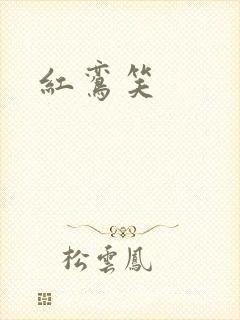 紅鸞笑
松雲鳳